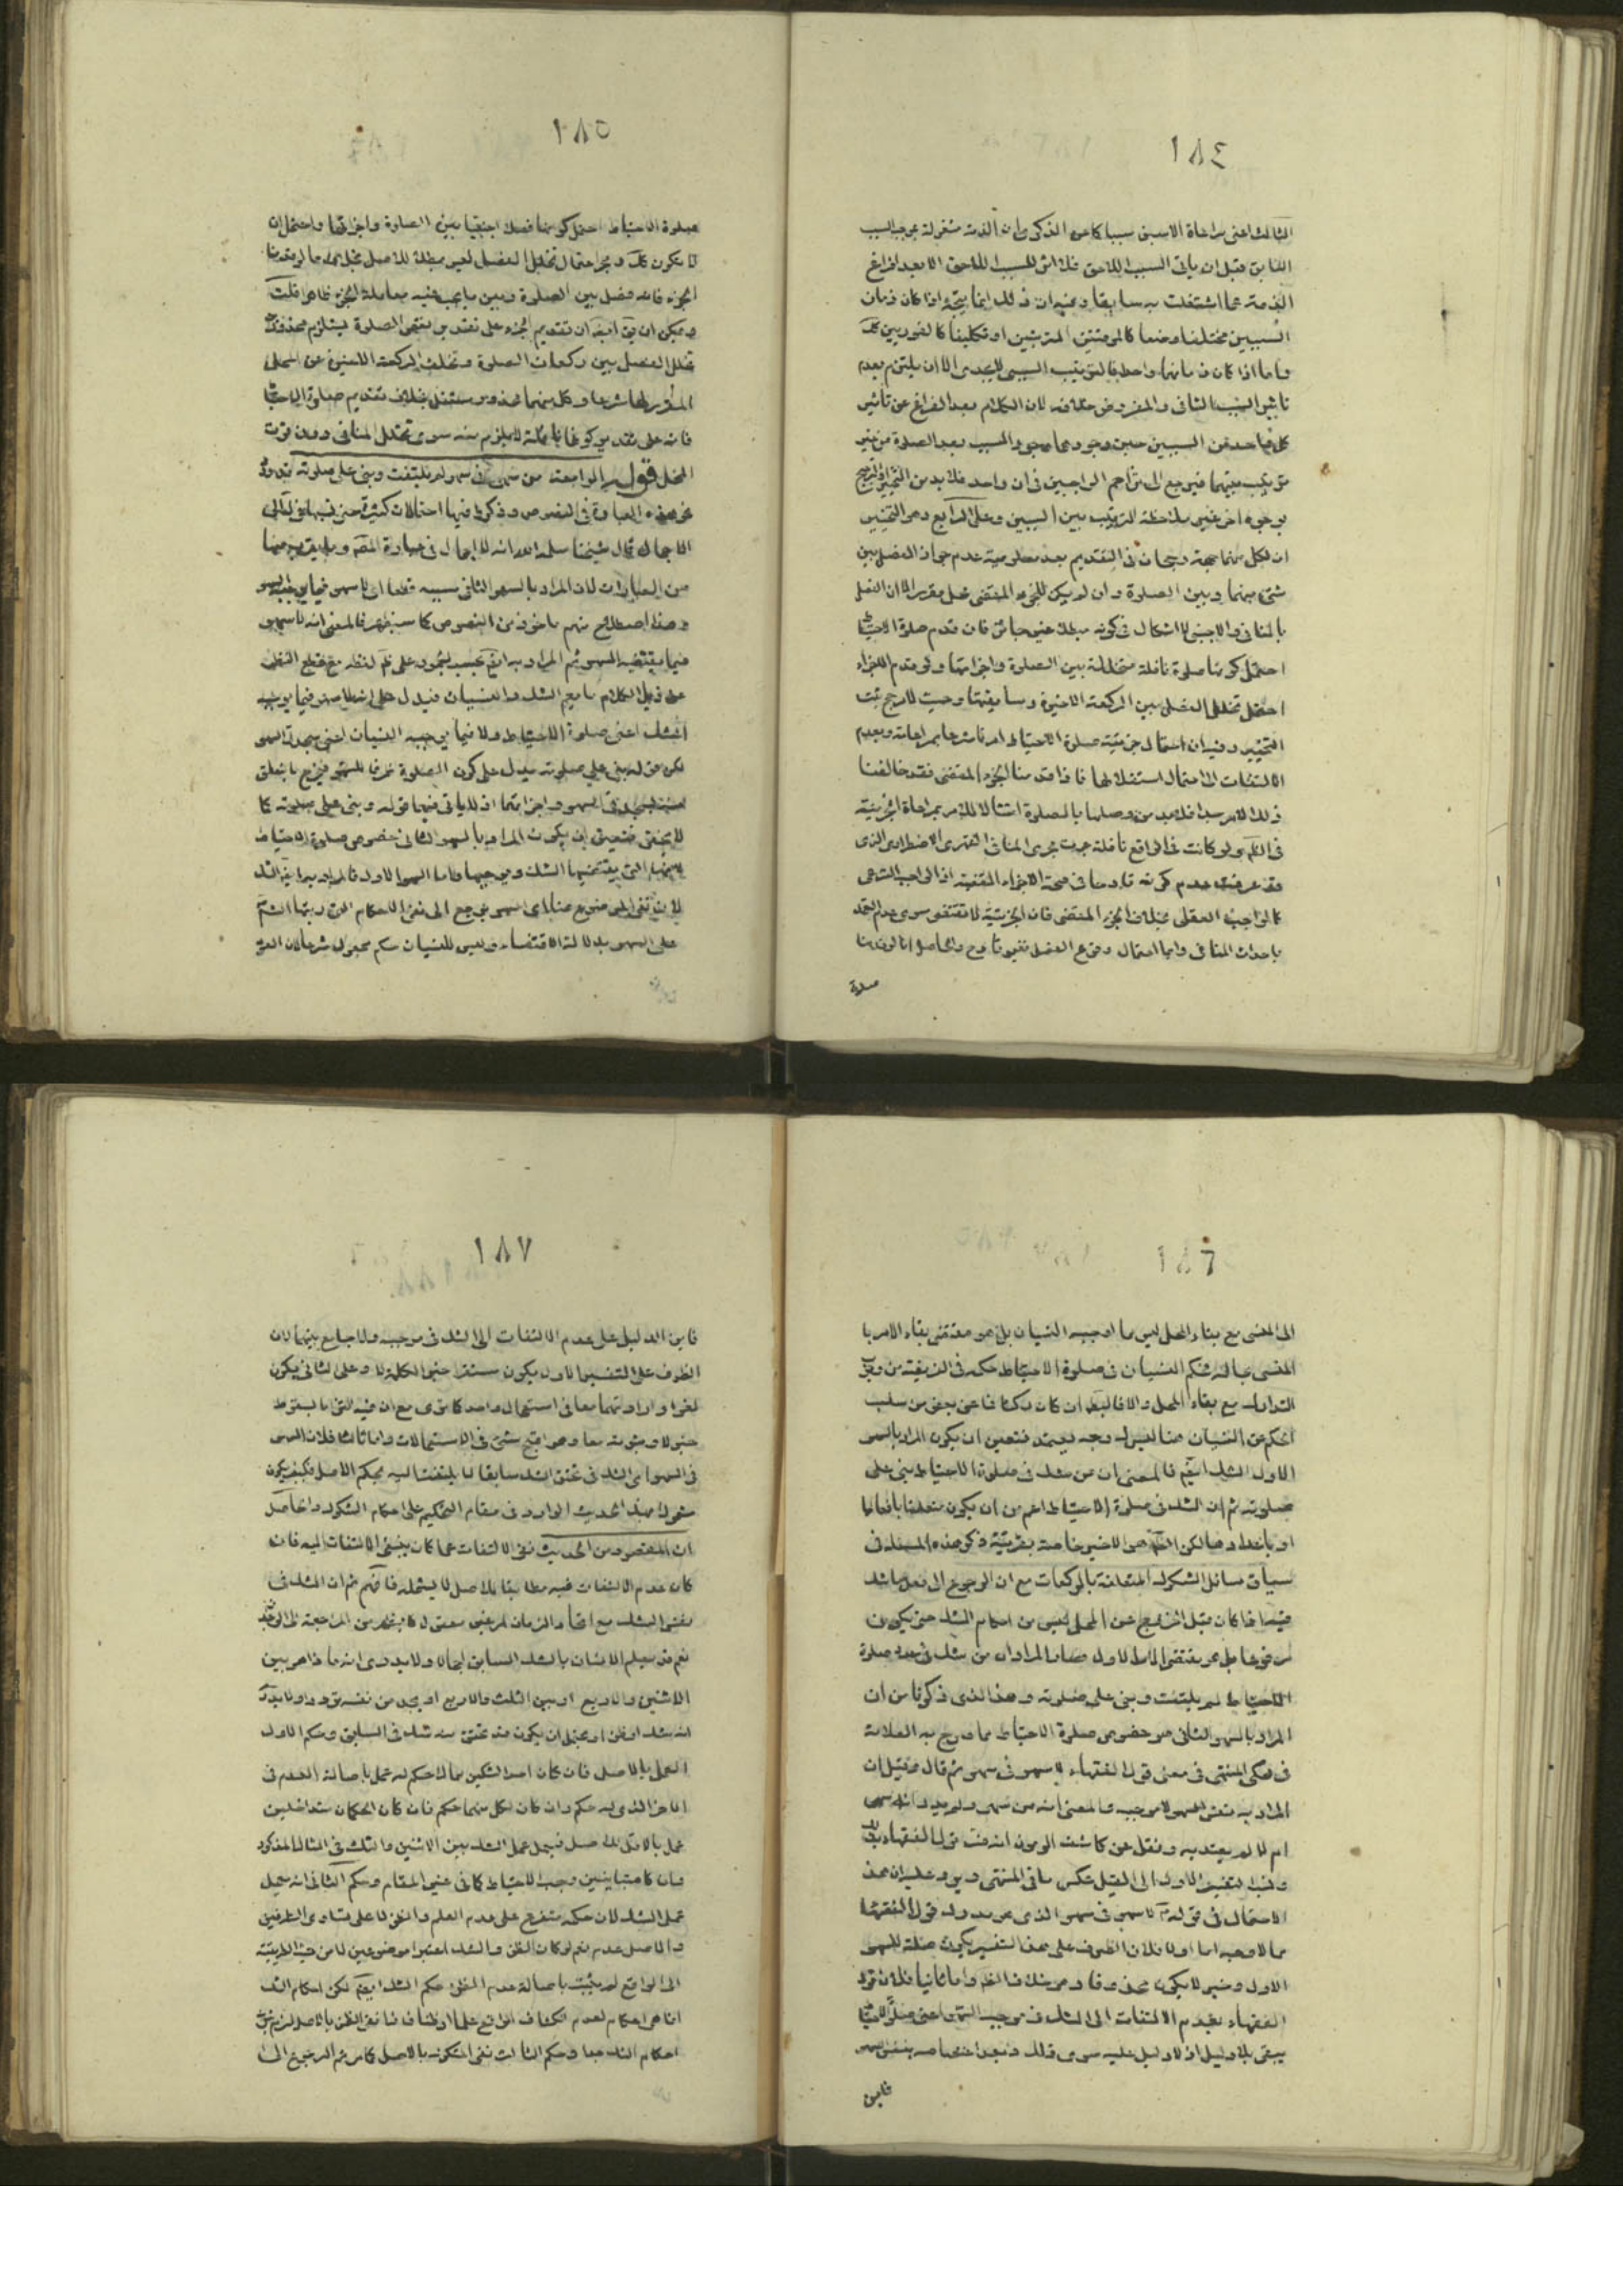 ١٨٤
الثالث اعنى مراعاة الاسبق سببا كما عن الذكرى لان الذمة مشغولة بموجب السبب
السابق قبل ان ياتى السبب اللاحق فلا اثر للسبب اللاحق الا بعد افراغ
الذمة عما اشتغلت به سابقا وفيه ان ذلك انما يتجه اذا كان زمان
السببين مختلفا وضعا كالموقتين المترتبين او تكليفا كالفوريين كك
واما اذا كان زمانهما واحدا فالترتيب السببى لا يجدى الا ان يلتزم بعدم
تاثير السبب الثانى والمفروض خلافه لان الكلام بعد الفراغ عن تاثير
كل واحد من السببين حين وجودهما وجود المسبب بعد الصلوة من غير
ترتيب بينهما فيرجع الى تزاحم الواجبين فى ان واحد فلا بد من التخيير او الترجيح
بوجوه اخر غير ملاحظة الترتيب بين السببين وعلى الرابع وهو التخيير
ان لكل منهما جهة رجحان فى التقديم بعد معلومية عدم جواز الفصل بين
شئ منهما وبين الصلوة وان لم يكن للجزء المقتضى محل مقرر الا ان الفعل
بالمنافى والاجنبى لا اشكال فى كونه مبطلا غير جائز فان قدم صلوة الاحتياط
احتمل كونها صلوة نافلة متخللة بين الصلوة واجزائها ولو قدم الاجزاء
احتمل تخلل الفصل بين الركعة الاخيرة وسابقتها وحيث لا مرجح ثبت
التخيير وفيه ان احتمال جزئية صلوة الاحتياط امر الشارع بمراعاته وبعدم
الالتفات الى احتمال استقلالها فاذا قدمنا الجزء المقتضى فقد خالفنا
ذلك الامر
فى الكل ولو كانت فى الواقع نافلة جرت مجرى المنافى القهرى الاضطرارى الذى
قد عرفت عدم كونه قادحا فى صحة الاجزاء المقضية اذ الواجب الشرعى
كالواجب العقلى بخلاف الجزء المقتضى فان الجزئية لا تقتضى سوى عدم التعمد
باحداث المنافى واما احتمال وقوع الفصل فغير قادح والحاصل انا لو قدمنا
صلوة
١٨٥
صلوة الاحتياط احتمل كونها فصلا اجنبيا بين الصلوة واجزائها واحتمل ان
لا يكون كك ومجرد احتمال تخلل الفصل لغير مبطل للاصل بخلاف ما لو قدمنا
الجزء فانه فصل بين الصلوة وبين ما يجب فيه معاملة الجزء ظاهرا قلت
ويمكن ان يق ايضا ان تقديم الجزء على تقدير نقص الصلوة يستلزم محذورين
تخلل الفصل بين ركعات الصلوة وتخلف الركعة الاخيرة عن المحل
المقرر لها شرعا وكل منهما محذور مستقل بخلاف تقديم صلوة الاحتياط
فانه على تقدير كونها نافلة لا يلزم منه سوى تخلل المنافى دون فوت
المحل قوله الرابعة من سهى فى سهو لم يلتفت وبنى على صلوته قد ورد
نحو هذه العبارة فى النصوص وذكروا فيها احتمالات كثيرة
الاجمال قال شيخنا سلمه الله انه لا اجمال فى عبارة المصه
من العبارات لان المراد بالسهو الثانى سببه قطعا اى لا سهو فيما يوجبه السهو
وهذا اصطلاح منهم ماخوذ من النصوص كما ستظهر فالمعنى انه لا سهو
فيما يقتضيه السهو ثم المراد به
الكلام ما يعم الشك والنسيان فيدل على انه لا سهو فيما يوجبه
الشك اعنى صلوة الاحتياط ولا فيما يوجبه النسيان اعنى سجدتى السهو
لكن قوله بنى على صلوته يدل على كون الصلوة ظرفا للسهو فيخرج ما يتعلق
بسجدتى السهو واجزائهما اذ لا ياتى فيهما قوله وبنى على صلوته كما
لا يخفى فتعين ان يكون المراد بالسهو الثانى خصوص صلوة الاحتياط
لانها التى يقتضيها الشك وموجبها واما السهو الاول فالمراد به ايضا الشك
لان نفى الموضوع هنا اى السهو يرجع الى نفى الاحكام التى رتبها الشارع
على السهو بدلالة الاقتضاء وليس للنسيان حكم مجعول شرعا لان العود
١٨٦
الى المنسى مع بقاء المحل ليس مما اوجبه النسيان بل هو مقتضى بقاء الامر با
لمنسى بحاله فحكم النسيان فى صلوة الاحتياط حكمه فى الفريضة من وجوب
التدارك مع بقاء المحل والا فالبطلان ان كان ركنا فاعن بعض من سلب
الحكم عن النسيان هنا ليس له وجه يعتمد فتعين ان يكون المراد بالسهو
الاول الشك ايضا فالمعنى ان من شك فى صلوة الاحتياط بنى على
صلوته ثم ان الشك فى صلوة الاحتياط اعم من ان يكون متعلقا بافعالها
او باعدادها لكن الظ هو الاخير خاصة بقرينة ذكر هذه المسئلة فى
سياق مسائل الشكوك المتعلقة بالركعات مع ان الرجوع الى فعل ما شك
فيه اذا كان قبل الخروج عن المحل ليس من احكام الشك حتى يكون
مرفوعا بل هو مقتضى الامر الاول فصار المراد ان من شك فى عدد صلوة
الاحتياط لم يلتفت وبنى على صلوته وهذا الذى ذكرنا من ان
المراد بالسهو الثانى هو خصوص صلوة الاحتياط مما صرح به العلامة
فى محكى المنتهى فى معنى قول الفقهاء لا سهو فى سهو ثم قال وقيل ان
المراد به نفس السهو لا موجبه فالمعنى انه من سهى ولم يدر انه سهى
ام لا لم يعتد به ونقل عن كاشف الرموز انه فسر قول الفقهاء بذلك
ونسب التفسير الاول الى القيل عكس ما فى المنتهى ويرد عليه ان هذا
الاحتمال فى قوله ع لا سهو فى سهو الذى هو مدرك قول الفقهاء
مما لا وجه له اما اولا فلان الظرف على هذا التفسير يكون صلة للسهو
الاول وخبر لا يكون محذوفا وهو خلاف الظ واما ثانيا فلان قول
الفقهاء بعدم الالتفات الى الشك فى موجب السهو اعنى صلوة الاحتياط
يبقى بلا دليل اذ لا دليل عليه سوى ذلك وبعد اختصاصه بنفس السهو
فاين
١٨٧
فاين الدليل على عدم الالتفات الى الشك فى موجبه ولا جامع بينهما لان
الظرف على التفسير الاول يكون مستقرا خبرا لكلمة لا وعلى الثانى يكون
لغوا وارادتهما معا فى استعمال واحد كما ترى مع ان فيه التزاما بسقوط
خبر لا وثبوته معا وهو اقبح شئ فى الاستعمالات واما ثالثا فلان السهو
فى السهو اى الشك فى تحقق الشك سابقا لا يلتفت اليه بحكم الاصل فكيف يكون
مشمولا لهذا الحديث الوارد فى مقام التحكيم على احكام الشكوك والحاصل
ان المقصود من الحديث نفى الالتفات عما كان ينبغى الالتفات اليه فان
كان عدم الالتفات فيه مطابقا للاصل لا يشمله فافهم ثم ان الشك فى
نفس الشك مع اتحاد الزمان امر غير معقول كما يظهر من المراجعة الى الوجدان
نعم قد يعلم الانسان بالشك السابق اجمالا ولا يدرى انه ما ذا هو بين
الاثنين والاربع او بين الثلث والاربع او يجد من نفسه ترددا ولا يدرى
انه شك او ظن او يحتمل ان يكون قد تحقق منه شك فى السابق وحكم الاول
العمل بالاصل فان كان احد الشكين مما لا حكم له عمل باصالة العدم فى
الاخر الذى له حكم وان كان لكل منهما حكم فان كان الحكمان متداخلين
عمل بالاقل للاصل فيعمل عمل الشك بين الاثنين والثلث فى المثال المذكور
وان كانا متباينين وجب الاحتياط كما فى غير المقام وحكم الثانى انه يعمل
عمل الشك لان حكمه متفرع على عدم العلم والظن لا على تساوى الطرفين
والاصل عدمه نعم لو كان الظن والشك اعتبرا موضوعين لا من حيث الطريقية
الى الواقع لم يثبت باصالة عدم الظن حكم الشك ايضا لكن احكام الشك
انما هى احكام لعدم انكشاف الواقع علما او ظنا فاذا نفى الظن بالاصل لزم ترتب
احكام الشك وحكم الثالث نفى المشكوك بالاصل كما مر ثم الرجوع الى